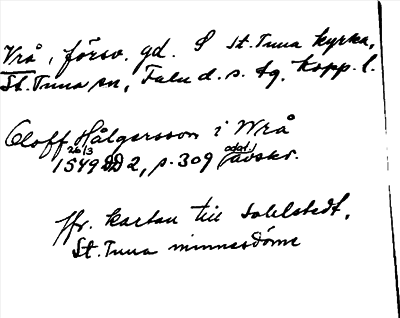 Vrå, försv. gd. S St. Tuna kyrka,
St. Tuna sn, Falu d. s. tg. Kopp. l.
Oloff Hålgersson i Wrå
26/3 odat.
1549 DD 2, s. 309 (avskr.
Jfr. kartan till Sahlstedt,
St. Tuna minnesdöme